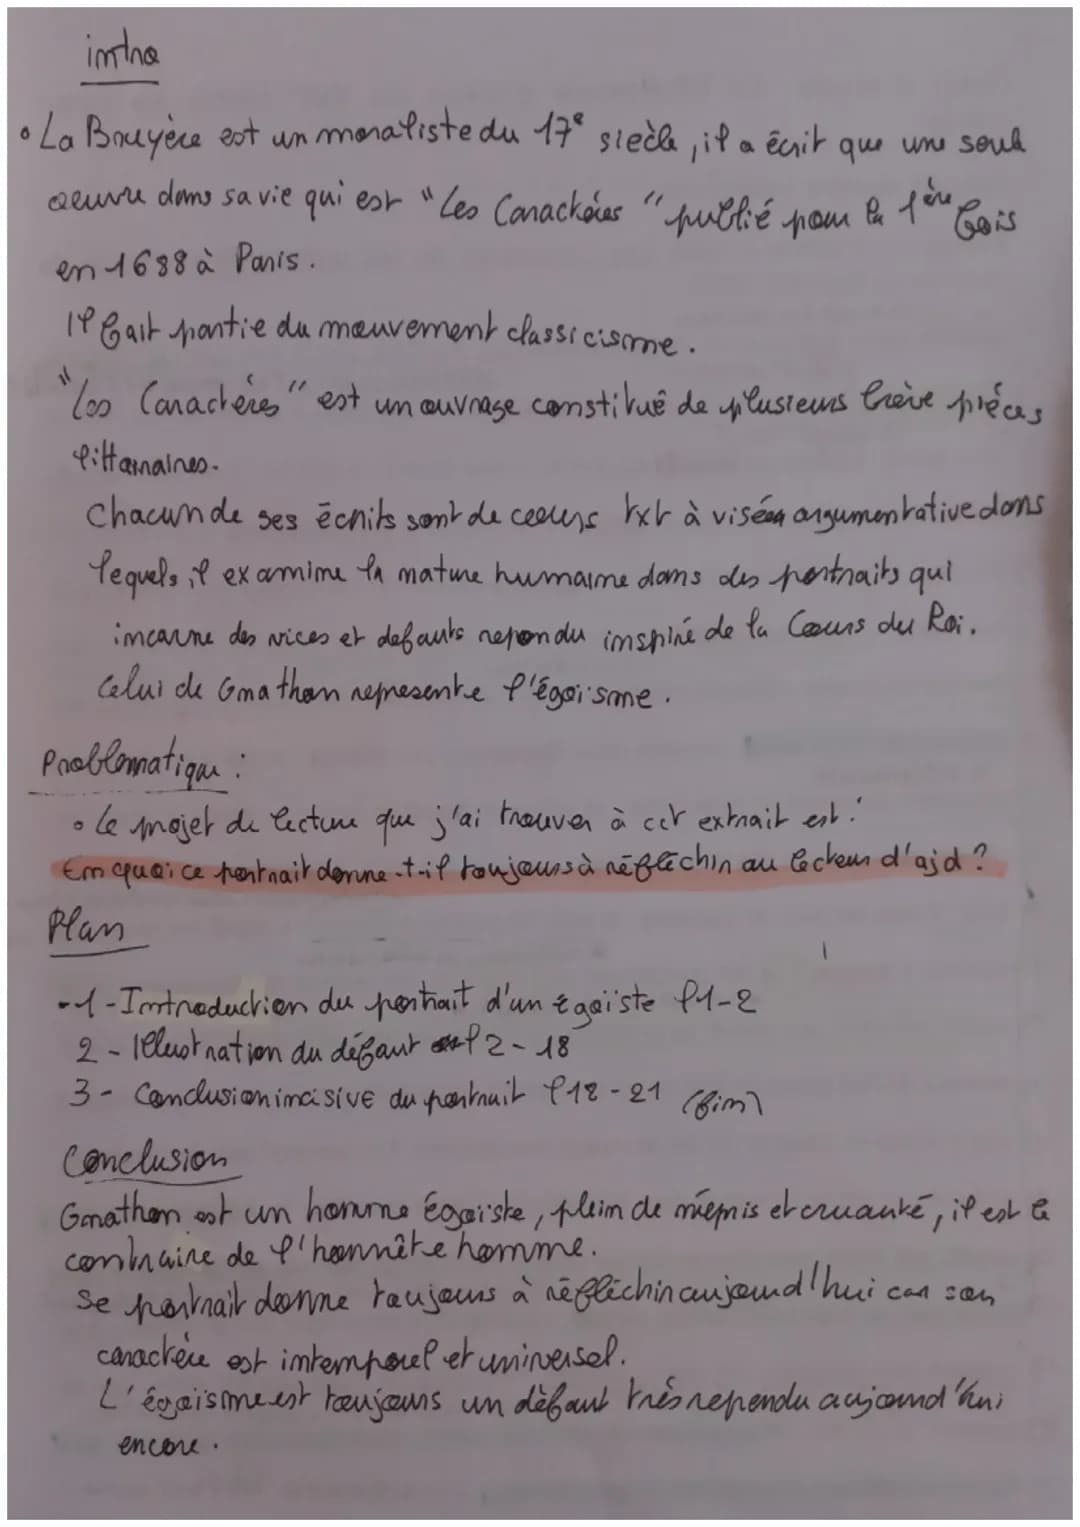 intro
• La Bruyère est un moraliste du 17e siècle, il a écrit que une seule
oeuvre dans sa vie qui est "Les Caractères" publié pour la 1ère fois
en 1688 à Paris.
Il fait partie du mouvement classicisme.
"Les Caractères" est un ouvrage constitué de plusieurs brève pièces
littéraires.
Chacun de ses écrits sont de cours txt à visée argumentative dans
lequels il examine la nature humaine dans des portraits qui
incarne des vices et defauts repondu inspiré de la Cours du Roi.
Celui de Gnathon represente l'égoïsme.
Problematique :
• Le projet de lecture que j'ai trouver à cet extrait est :
En quoi ce portrait donne-t-il toujours à réfléchir au lecteur d'ajd ?
Plan
-1- Introduction du portrait d'un égoïste l1-2
2- Illustration du défaut l2-18
3- Conclusion incisive du portrait l18-21 (fin)
Conclusion
Gnathon est un homme égoïste, plein de mépris et cruauté, il est le
contraire de l'honnête homme.
Se portrait donne toujours à réfléchir aujourd'hui car son
caractère est intemporel et universel.
L'égoïsme est toujours un défaut très rependu aujourd'hui
encore.